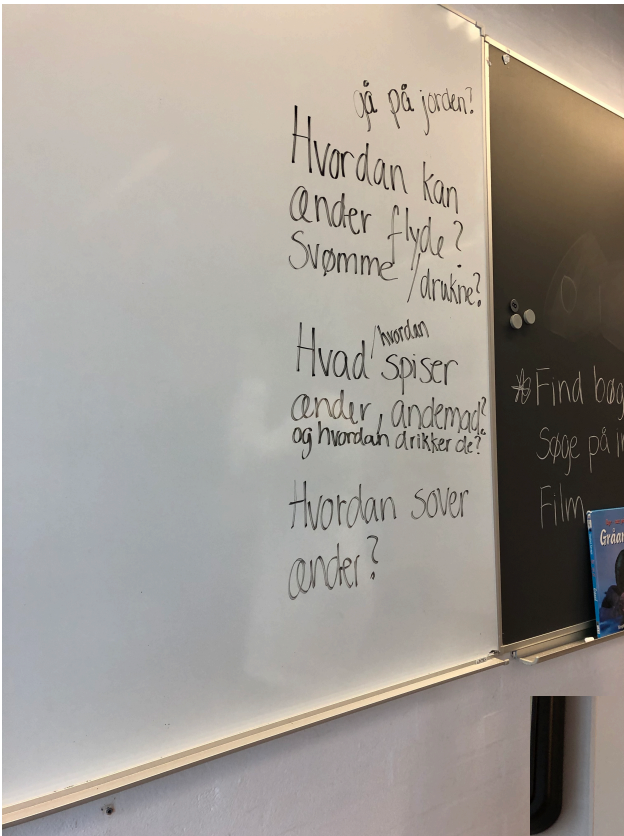 gå på jorden?
Hvordan kan
ænder flyde?
Svømme /drukne?
/hvordan
Hvad spiser
ænder, andemad?
og hvordan drikker de?
Hvordan sover
ænder?
Find bøg
Søge på i
Film
Gråan